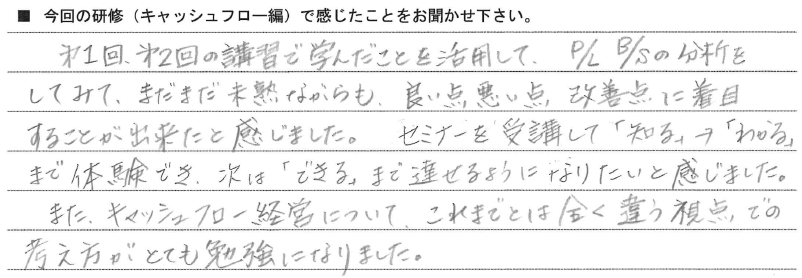 ■ 今回の研修（キャッシュフロー編）で感じたことをお聞かせ下さい。
第1回、第2回の講習で学んだことを活用して、P/L B/Sの分析を
してみて、まだまだ未熟ながらも、良い点、悪い点、改善点に着目
することが出来たと感じました。 セミナーを受講して「知る」→「わかる」
まで体験でき、次は「できる」まで達せるようになりたいと感じました。
また、キャッシュフロー経営について、これまでとは全く違う視点での
考え方がとても勉強になりました。